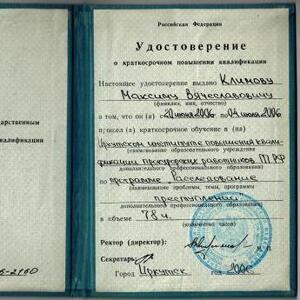 Российская Федерация
Удостоверение
о краткосрочном повышении квалификации
Настоящее удостоверение выдано Климову
Максиму Вячеславовичу
(фамилия, имя, отчество)
в том, что он (а) 2006 2006
краткосрочное обучение в (на)
Иркутском институте повышения квали-
(наименование образовательного учреждения
фикации прокурорских работников ГП РФ
дополнительного профессионального образования)
по программе Расследование
(наименование проблемы, темы, программы
преступлений
дополнительного профессионального образования)
в объеме 78 ч.
(количество часов)
Ректор (директор)
Секретарь
Город Иркутск год 2006
ударственным
квалификации